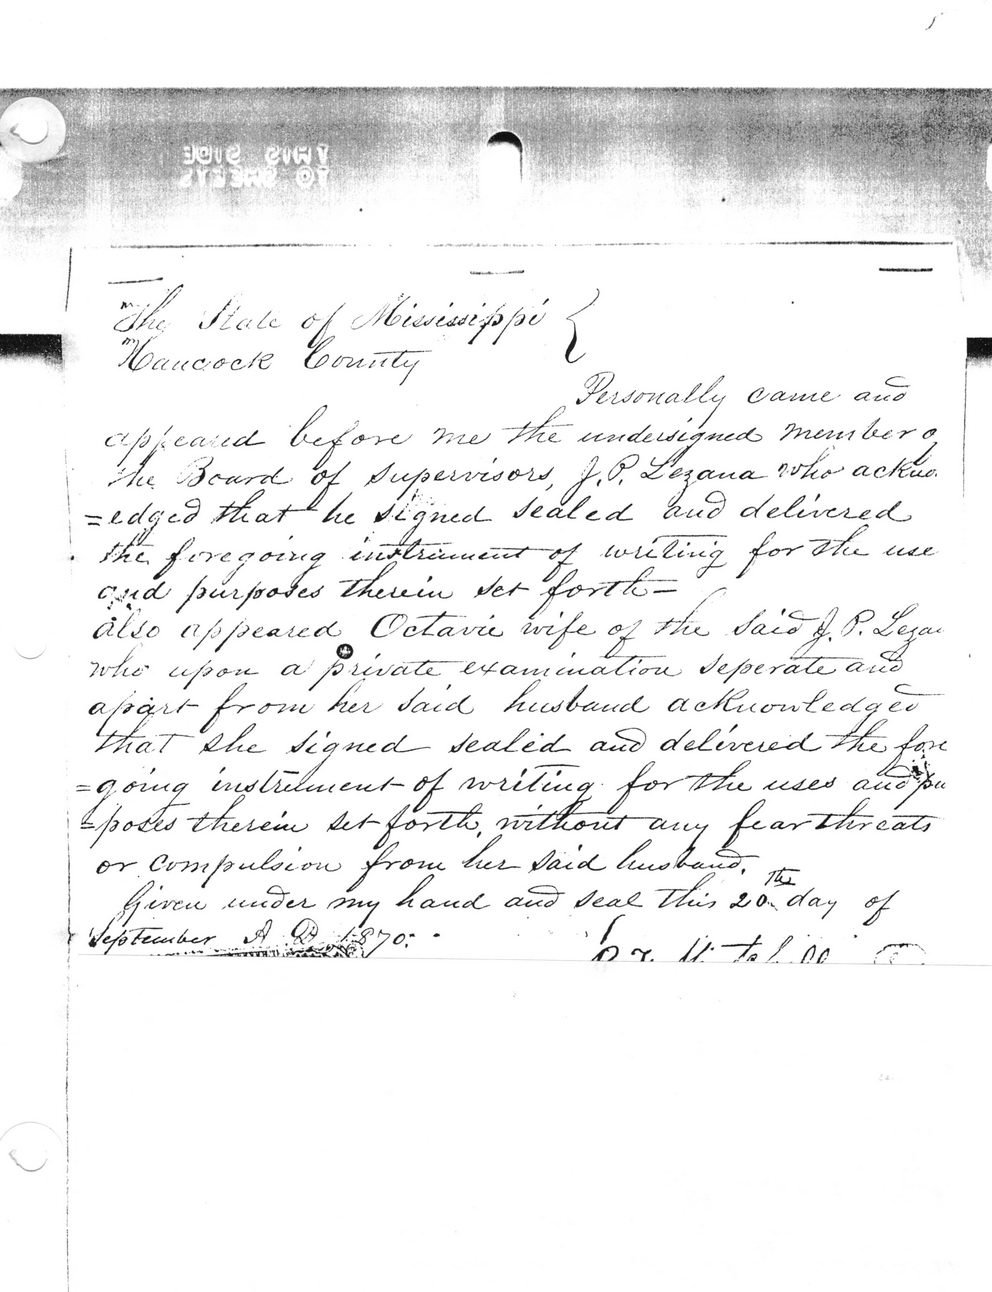 5
THIS SIDE
TO SHEETS
The State of Mississippi {
Hancock County
Personally came and
appeared before me the undersigned member o
the Board of supervisors, J. P. Lezana who acknow
=edged that he signed sealed and delivered
the foregoing instrument of writing for the use
and purposes therein set forth—
also appeared Octavie wife of the said J. P. Lezan
who upon a private examination seperate and
apart from her said husband acknowledged
that she signed sealed and delivered the fore
=going instrument of writing for the uses and pu
=poses therein set forth, without any fear threats
or compulsion from her said husband.
Given under my hand and seal this 20th day of
September A. D. 1870.